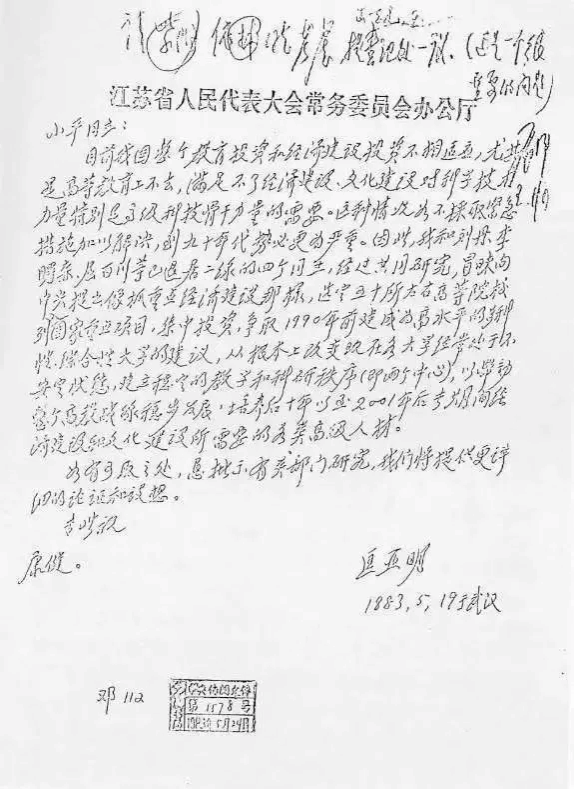 请紫阳
提书记处一议。(这是一个很
重要的问题)
江苏省人民代表大会常务委员会办公厅
小平同志:
目前我国整个教育投资和经济建设投资不相适应,尤其
是高等教育上不去,满足不了经济建设、文化建设对科学技术
力量特别是高级科技骨干力量的需要。这种情况如不採取紧急
措施加以解决,到九十年代势必更为严重。因此,我和刘丹、李
曙森、屈伯川等已退居二线的四个同志,经过共同研究,冒昧向
中央提出像抓重点经济建设那样,选定五十所左右高等院校
列国家重点项目,集中投资,争取1990年前建成为高水平的
性、综合性大学的建议,从根本上改变现在各大学经常处于不
安定状态,建立稳定的教学和科研秩序(即两个中心),以带动
整个高教战线稳步发展,培养后十年以至2001年后长期间经
济建设和文化建设所需要的各类高级人材。
如有可取之处,恳批示有关部门研究,我们将提供更详
细的论证和设想。
专此祝
康健。
匡亚明
1883,5,19于武汉
邓112
第1578号
5月24日